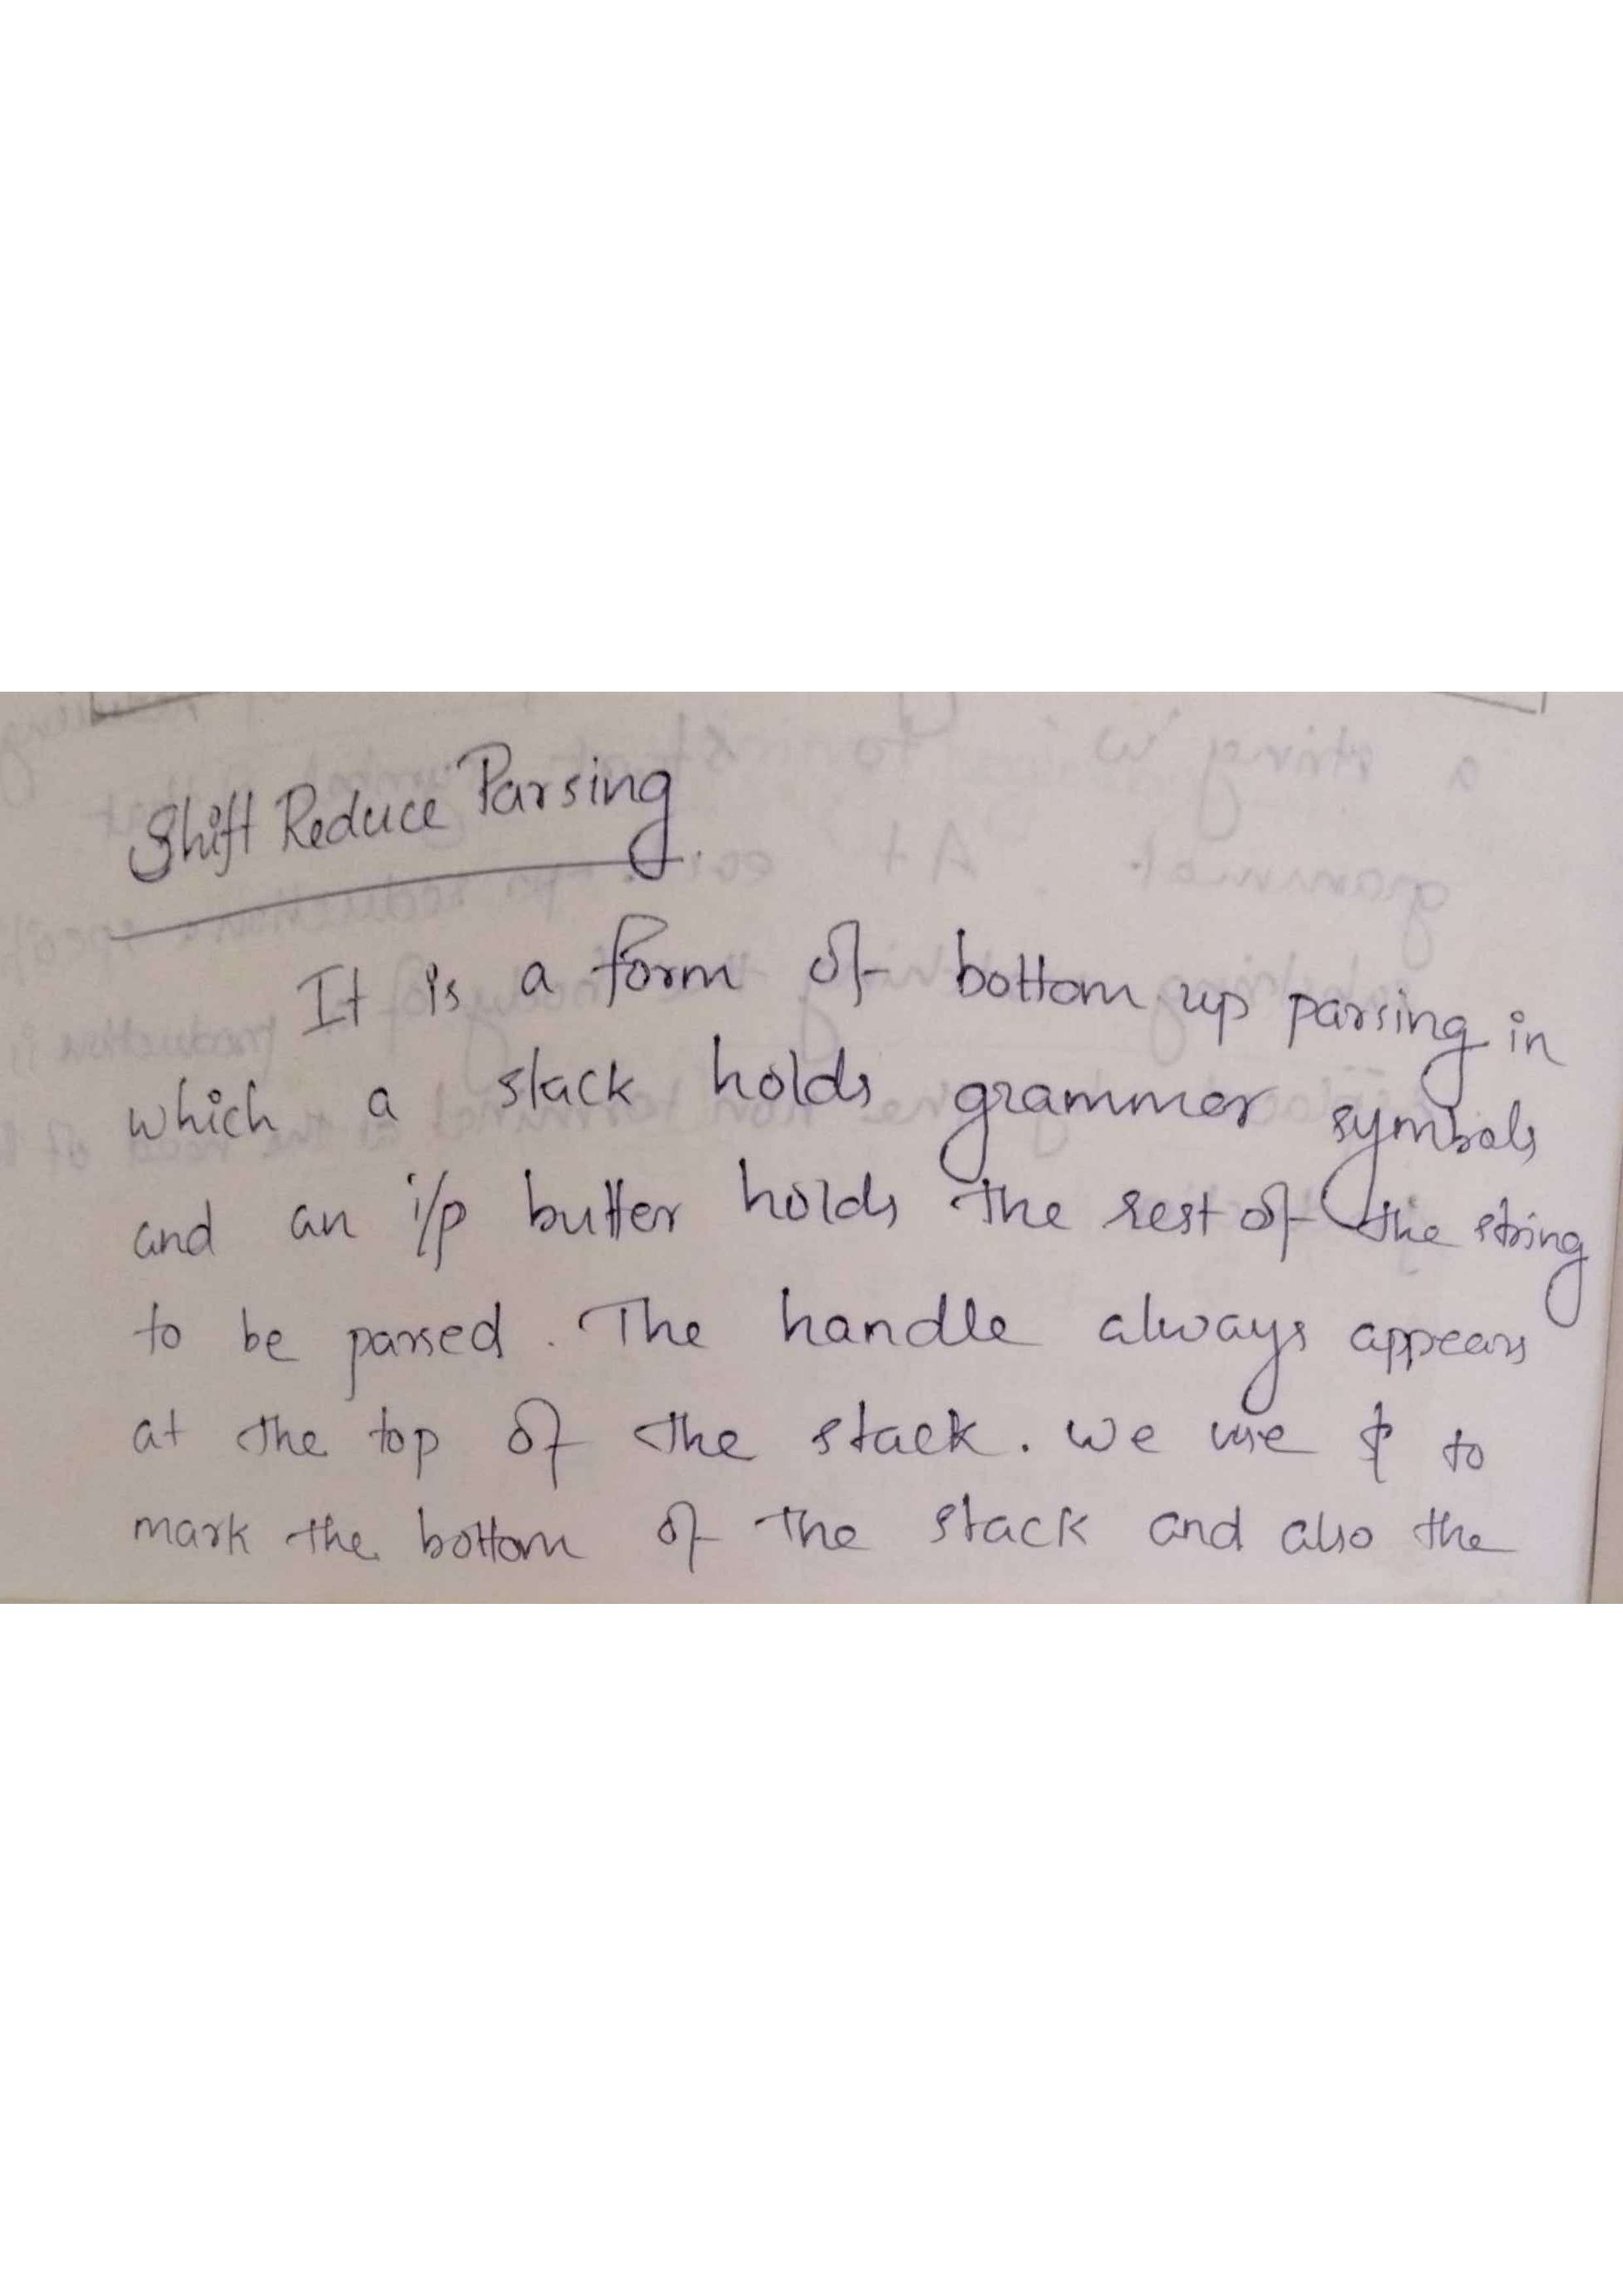 Shift Reduce Parsing.
It is a form of bottom up parsing in
which a stack holds grammer symbols
and an i/p buffer holds the rest of the string
to be parsed. The handle always appears
at the top of the stack. We use $ to
mark the bottom of the stack and also the